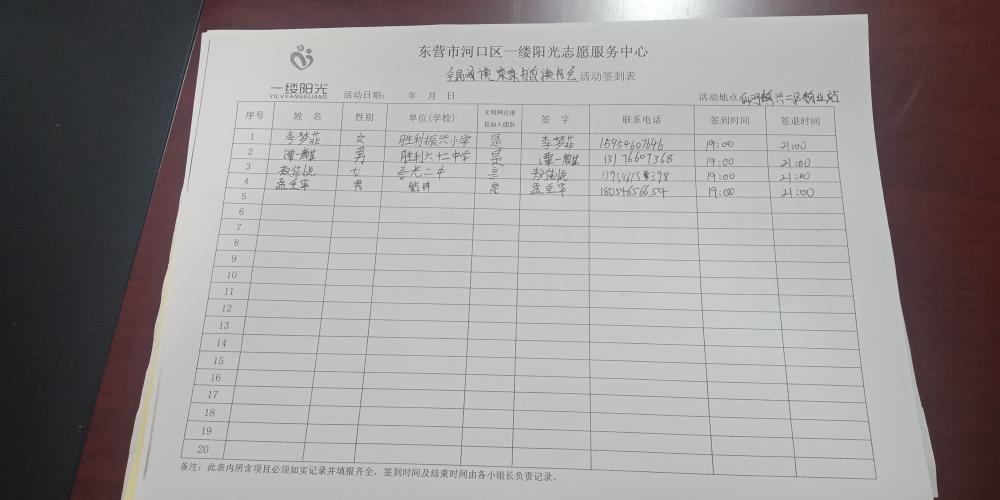 东营市河口区一缕阳光志愿服务中心
活动签到表
一缕阳光
YILVYANGGUANG
活动日期: 年 月 日 活动地点
序号 姓 名 性别 单位(学校) 文明网注册且加入团队 签 字 联系电话 签到时间 签退时间
1 李梦菲 女 胜利振兴小学 是 李梦菲 15954607646 19:00 21:00
2 谭一麒 男 胜利六十二中学 是 谭一麒 13176607368 19:00 21:00
3 女 是 19:00 21:00
4 孟全华 男 是 孟全华 18054656654 19:00 21:00
5
6
7
8
9
10
11
12
13
14
15
16
17
18
19
20
备注: 此表内所含项目必须如实记录并填报齐全, 签到时间及结束时间由各小组长负责记录。